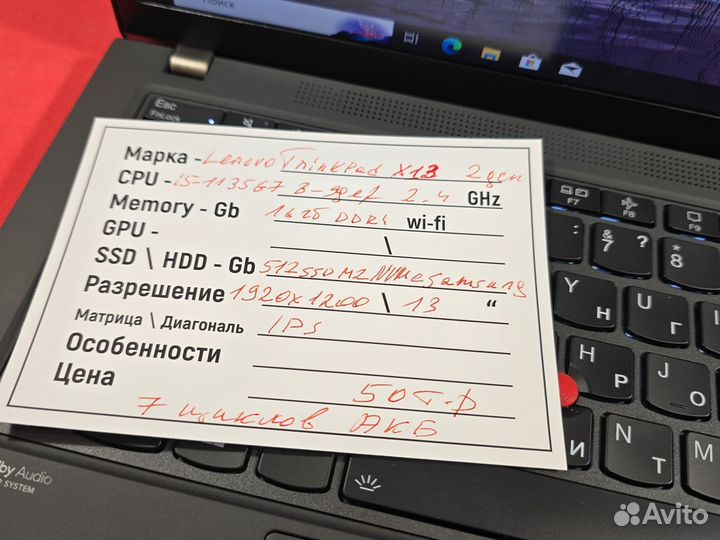 Поиск
Esc
FnLock
Марка - Lenovo ThinkPad X13 2 gen
CPU - i5-1135G7 8-ядер 2.4 GHz
Memory - Gb 16 Gb DDR4 wi-fi
GPU - \
SSD \ HDD - Gb 512 SSD M2 NVMe Samsung
Разрешение 1920x1200 \ 13 "
Матрица \ Диагональ IPS
Особенности
Цена 50 т.р
7 циклов АКБ
F7 F8 F9
& 7 ? * 8
Y Н U Г
H Р J О
И N Т M Ь
by Audio
SYSTEM
Avito